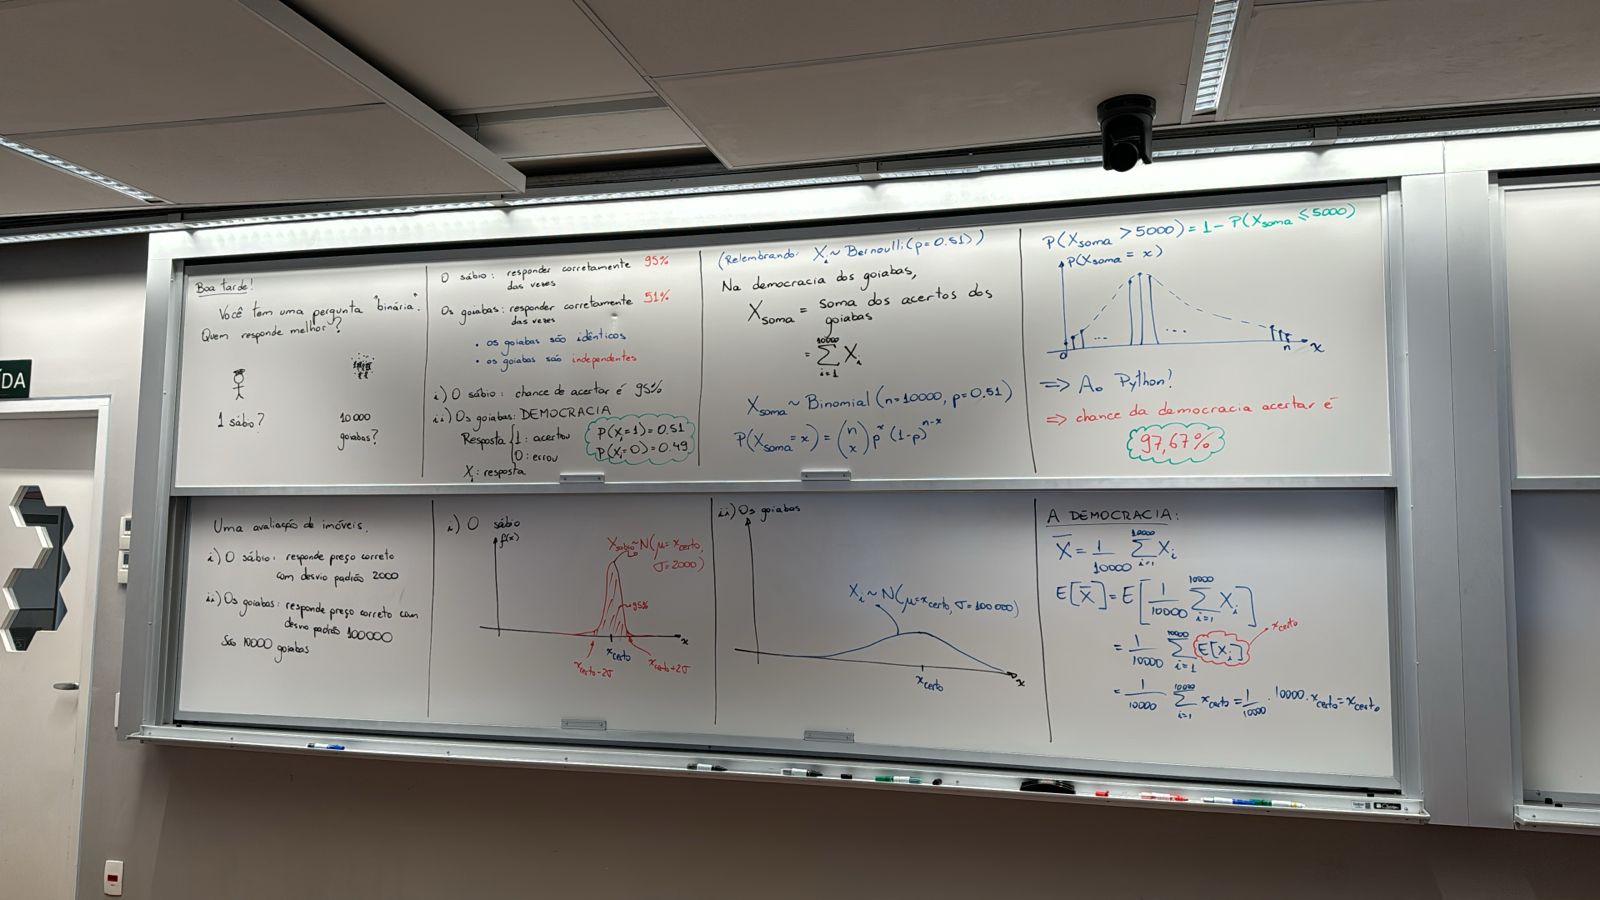 Boa tarde!
Você tem uma pergunta "binária".
Quem responde melhor?
1 sábio?
10000
goiabas?
O sábio: responder corretamente 95%
das vezes
Os goiabas: responder corretamente 51%
das vezes
• os goiabas são idênticos
• os goiabas são independentes
i) O sábio: chance de acertar é 95%
ii) Os goiabas: DEMOCRACIA
Resposta { 1: acertou
0: errou
P(Xᵢ=1)=0.51
P(Xᵢ=0)=0.49
Xᵢ: resposta
(Relembrando: Xᵢ ~ Bernoulli(p=0.51))
Na democracia dos goiabas,
X_soma = soma dos acertos dos
goiabas
= ∑_{i=1}^{10000} Xᵢ
X_soma ~ Binomial (n=10000, p=0.51)
P(X_soma = x) = (n x) p^x (1-p)^{n-x}
P(X_soma > 5000) = 1 - P(X_soma ≤ 5000)
P(X_soma = x)
0 ... ... n x
⇒ Ao Python!
⇒ chance da democracia acertar é
97,67%
Uma avaliação de imóveis.
i) O sábio: responde preço correto
com desvio padrão 2000
ii) Os goiabas: responde preço correto com
desvio padrão 100000
São 10000 goiabas
i) O sábio
f(x)
X_sábio ~ N(μ = x_certo,
σ = 2000)
95%
x
x_certo
x_certo - 2σ
x_certo + 2σ
ii) Os goiabas
Xᵢ ~ N(μ = x_certo, σ = 100000)
x_certo
x
A DEMOCRACIA:
X̄ = 1/10000 ∑_{i=1}^{10000} Xᵢ
E[X̄] = E[1/10000 ∑_{i=1}^{10000} Xᵢ]
= 1/10000 ∑_{i=1}^{10000} E[Xᵢ] x_certo
= 1/10000 ∑_{i=1}^{10000} x_certo = 1/10000 · 10000 · x_certo = x_certo